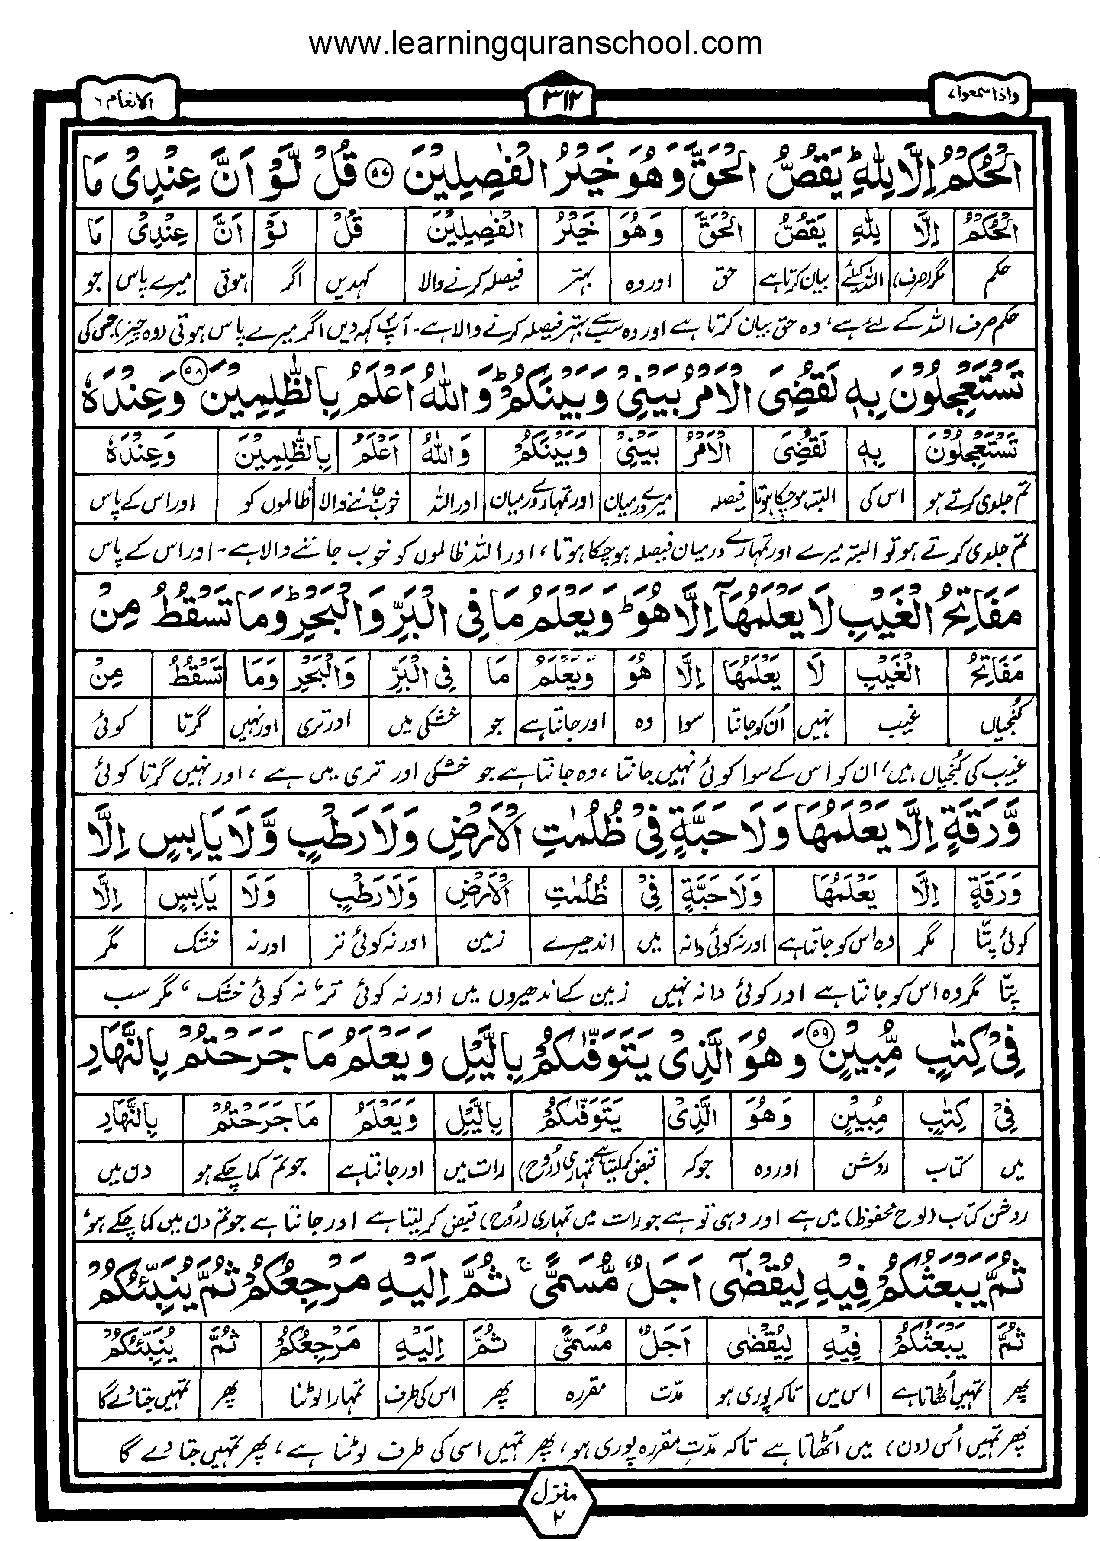 www.learningquranschool.com
واذا سمعوا ٧ ٣١٢ الانعام ٦
الْحُكْمُ اِلَّا لِلّٰهِ ؕ يَقُصُّ الْحَقَّ وَهُوَ خَيْرُ الْفٰصِلِيْنَ ۝٥٧ قُلْ لَّوْ اَنَّ عِنْدِىْ مَا
الْحُكْمُ اِلَّا لِلّٰهِ يَقُصُّ الْحَقَّ وَهُوَ خَيْرُ الْفٰصِلِيْنَ قُلْ لَوْ اَنَّ عِنْدِىْ مَا
حکم مگر(صرف) اللہ کیلئے بیان کرتا ہے حق اور وہ بہتر فیصلہ کرنے والا کہدیں اگر ہوتی میرے پاس جو
حکم صرف اللہ کے لئے ہے، وہ حق بیان کرتا ہے اور وہ سب سے بہتر فیصلہ کرنے والا ہے۔ آپ کہہ دیں اگر میرے پاس ہوتی (وہ چیز) جس کی
تَسْتَعْجِلُوْنَ بِهٖ لَقُضِىَ الْاَمْرُ بَيْنِىْ وَبَيْنَكُمْ ؕ وَاللّٰهُ اَعْلَمُ بِالظّٰلِمِيْنَ ۝٥٨ وَعِنْدَهٗ
تَسْتَعْجِلُوْنَ بِهٖ لَقُضِىَ الْاَمْرُ بَيْنِىْ وَبَيْنَكُمْ وَاللّٰهُ اَعْلَمُ بِالظّٰلِمِيْنَ وَعِنْدَهٗ
تم جلدی کرتے ہو اس کی البتہ ہوچکا ہوتا فیصلہ میرے درمیان اور تمہارے درمیان اور اللہ خوب جاننے والا ظالموں کو اور اس کے پاس
تم جلدی کرتے ہو تو البتہ میرے اور تمہارے درمیان فیصلہ ہوچکا ہوتا، اور اللہ ظالموں کو خوب جاننے والا ہے۔ اور اس کے پاس
مَفَاتِحُ الْغَيْبِ لَا يَعْلَمُهَآ اِلَّا هُوَ ؕ وَيَعْلَمُ مَا فِى الْبَرِّ وَالْبَحْرِ ؕ وَمَا تَسْقُطُ مِنْ
مَفَاتِحُ الْغَيْبِ لَا يَعْلَمُهَا اِلَّا هُوَ وَيَعْلَمُ مَا فِى الْبَرِّ وَالْبَحْرِ وَمَا تَسْقُطُ مِنْ
کنجیاں غیب نہیں اُن کو جانتا سوا وہ اور جانتا ہے جو خشکی میں اور تری اور نہیں گرتا کوئی
غیب کی کنجیاں ہیں، ان کو اس کے سوا کوئی نہیں جانتا، وہ جانتا ہے جو خشکی اور تری میں ہے، اور نہیں گرتا کوئی
وَّرَقَةٍ اِلَّا يَعْلَمُهَا وَلَا حَبَّةٍ فِىْ ظُلُمٰتِ الْاَرْضِ وَلَا رَطْبٍ وَّلَا يَابِسٍ اِلَّا
وَرَقَةٍ اِلَّا يَعْلَمُهَا وَلَا حَبَّةٍ فِىْ ظُلُمٰتِ الْاَرْضِ وَلَا رَطْبٍ وَلَا يَابِسٍ اِلَّا
کوئی پتّا مگر وہ اس کو جانتا ہے اور نہ کوئی دانہ میں اندھیرے زمین اور نہ کوئی تر اور نہ خشک مگر
پتّا مگر وہ اس کو جانتا ہے اور کوئی دانہ نہیں زمین کے اندھیروں میں اور نہ کوئی تر، نہ کوئی خشک، مگر سب
فِىْ كِتٰبٍ مُّبِيْنٍ ۝٥٩ وَهُوَ الَّذِىْ يَتَوَفّٰىكُمْ بِالَّيْلِ وَيَعْلَمُ مَا جَرَحْتُمْ بِالنَّهَارِ
فِىْ كِتٰبٍ مُبِيْنٍ وَهُوَ الَّذِىْ يَتَوَفّٰىكُمْ بِالَّيْلِ وَيَعْلَمُ مَا جَرَحْتُمْ بِالنَّهَارِ
میں کتاب روشن اور وہ جو کہ قبض کرلیتا ہے تمہاری (روح) رات میں اور جانتا ہے جو تم کما چکے ہو دن میں
روشن کتاب (لوح محفوظ) میں ہے اور وہی تو ہے جو رات میں تمہاری (روح) قبض کرلیتا ہے اور جانتا ہے جو تم دن میں کما چکے ہو،
ثُمَّ يَبْعَثُكُمْ فِيْهِ لِيُقْضٰٓى اَجَلٌ مُّسَمًّى ۚ ثُمَّ اِلَيْهِ مَرْجِعُكُمْ ثُمَّ يُنَبِّئُكُمْ
ثُمَّ يَبْعَثُكُمْ فِيْهِ لِيُقْضٰى اَجَلٌ مُسَمًّى ثُمَّ اِلَيْهِ مَرْجِعُكُمْ ثُمَّ يُنَبِّئُكُمْ
پھر تمہیں اُٹھاتا ہے اس میں تاکہ پوری ہو مدّت مقررہ پھر اس کی طرف تمہارا لوٹنا پھر تمہیں جتا دے گا
پھر تمہیں اُس (دن) میں اُٹھاتا ہے تاکہ مدّتِ مقررہ پوری ہو، پھر تمہیں اسی کی طرف لوٹنا ہے، پھر تمہیں جتا دے گا
منزل
٢